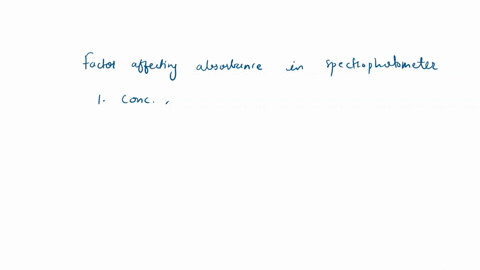 factor affecting absorbance in spectrophotometer
1. Conc. ,